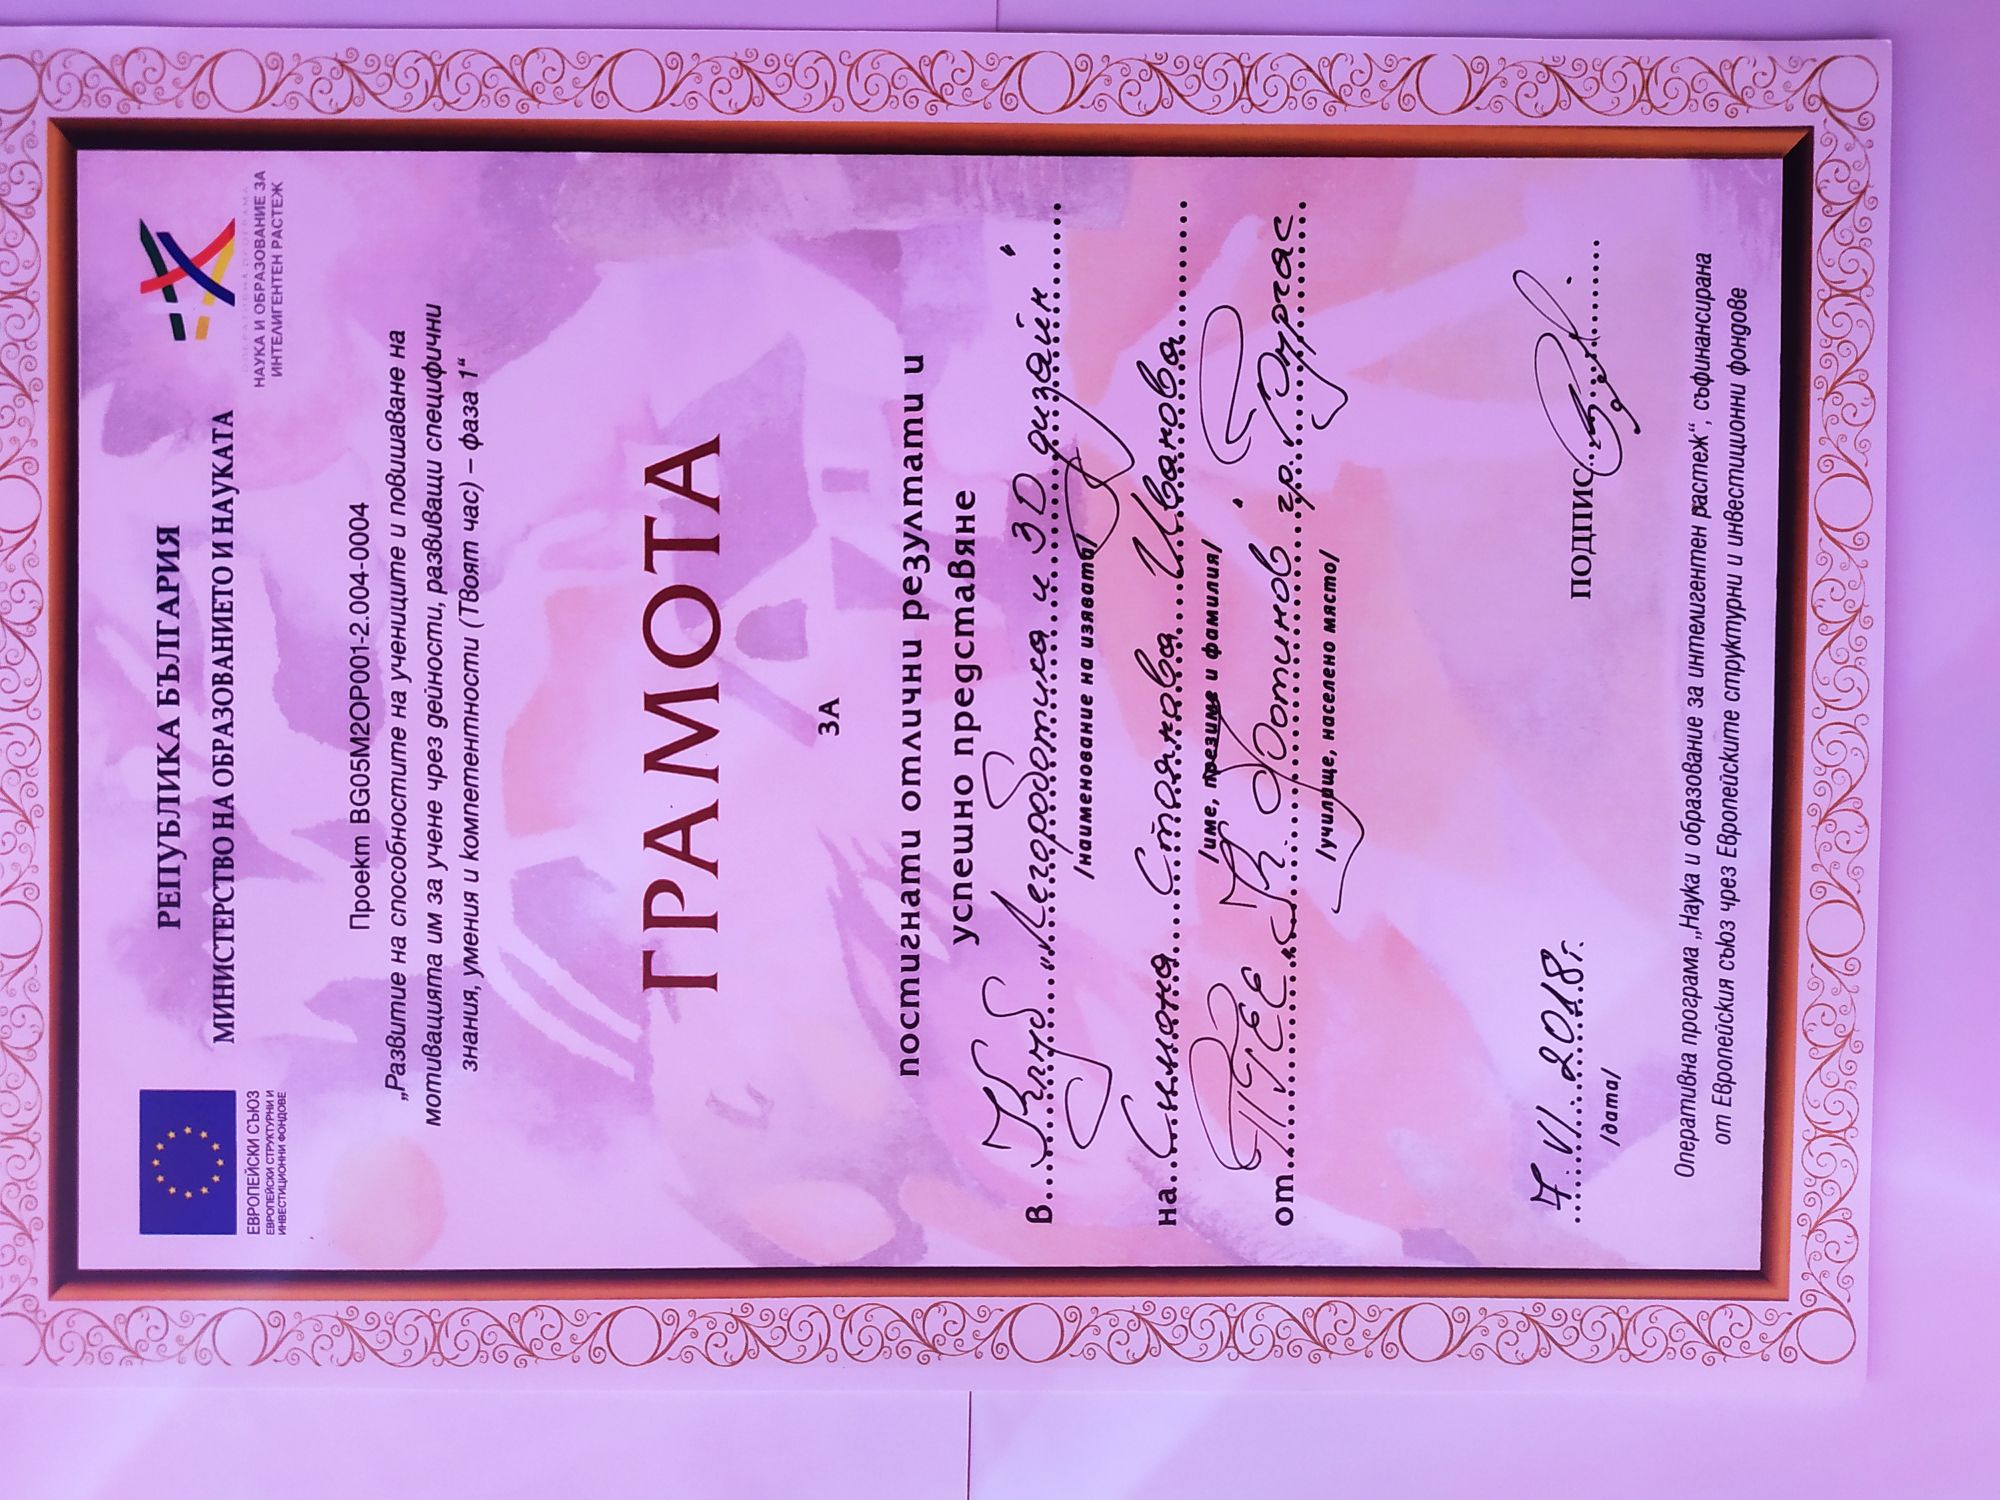 РЕПУБЛИКА БЪЛГАРИЯ
МИНИСТЕРСТВО НА ОБРАЗОВАНИЕТО И НАУКАТА
ЕВРОПЕЙСКИ СЪЮЗ
ЕВРОПЕЙСКИ СТРУКТУРНИ И
ИНВЕСТИЦИОННИ ФОНДОВЕ
ОПЕРАТИВНА ПРОГРАМА
НАУКА И ОБРАЗОВАНИЕ ЗА
ИНТЕЛИГЕНТЕН РАСТЕЖ
Проект BG05M2OP001-2.004-0004
„Развитие на способностите на учениците и повишаване на
мотивацията им за учене чрез дейности, развиващи специфични
знания, умения и компетентности (Твоят час) – фаза 1“
ГРАМОТА
ЗА
постигнати отлични резултати и
успешно представяне
в Клуб „Легороботика и 3D дизайн"
/наименование на изявата/
на Симона Стоянова Иванова
/име, презиме и фамилия/
от ПГЕЕ „К. Фотинов" гр. Бургас
/училище, населено място/
7.VI.2018г.
/дата/
ПОДПИС
Оперативна програма „Наука и образование за интелигентен растеж“, съфинансирана
от Европейския съюз чрез Европейските структурни и инвестиционни фондове